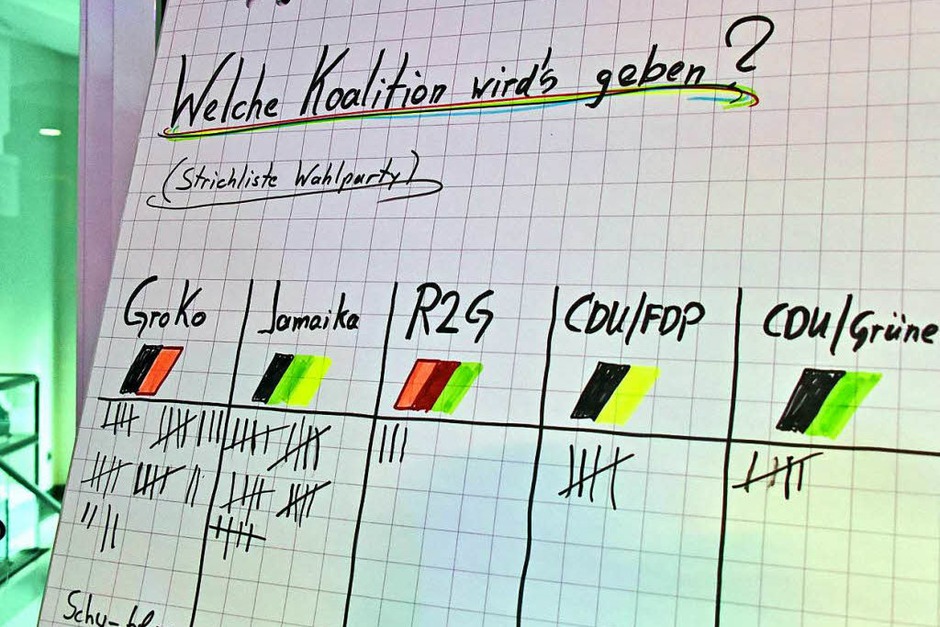 Welche Koalition wird's geben?
(Strichliste Wahlparty)
GroKo Jamaika R2G CDU/FDP CDU/Grüne